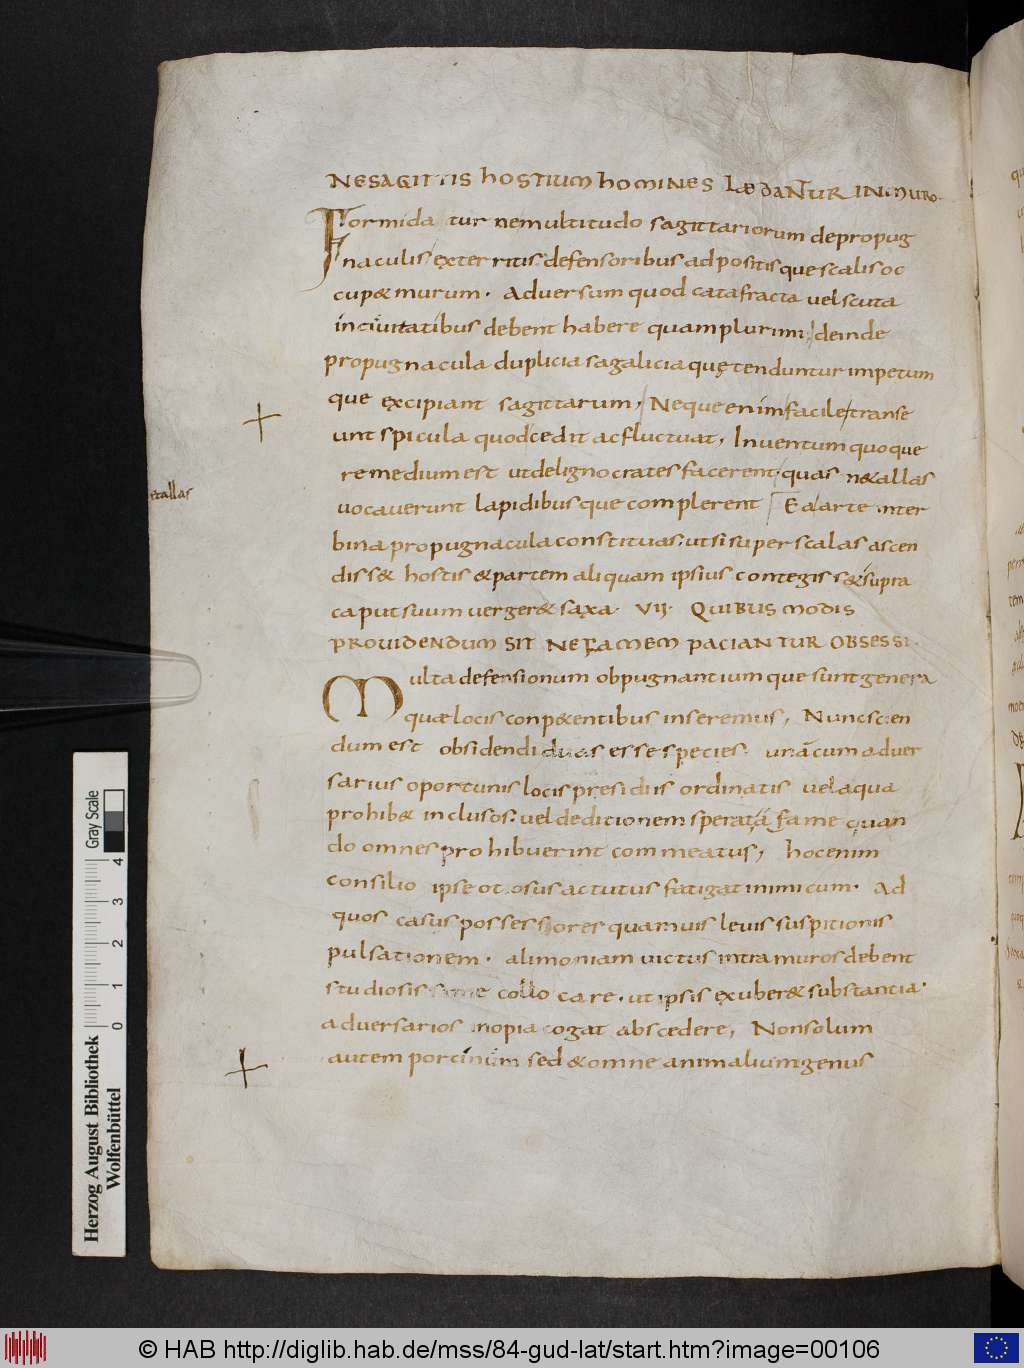 NESAGITTIS hOSTIUM hOMINES LædaNTUR INMURO.
Formida tur nemultitudo sagittariorum depropug
naculis exter ritis defensoribus ad positis que scalis oc
cup& murum. Aduersum quod catafracta uel scuta
inciuitatibus debent habere quam plurimi; deinde
propugnacula duplicia saga licia quę tenduntur impetum
que excipiant sagittarum, Neque enim facile transe
unt spicula quod cedit ac fluctuat, Inuentum quoque
remedium est ut deligno crates facerent quas n&allas
etallas
uocauerunt lapidibus que complerent Ea arte inter
bina propugnacula constitutas. ut si super scalas ascen
diss& hostis & partem aliquam ipsius contegiss& supra
caput suum uerger& saxa. VII. QUIBUS MODIS
PROUIDENDUM SIT NE FAMEM PACIANTUR OBSESSI.
Multa defensionum obpugnantium que sunt genera
quæ locis conp&entibus inseremus, Nunc scien
dum est obsidendi duas esse species. unā cum aduer
sarius oportunis locis presidiis ordinatis uel aqua
prohib& inclusos. uel deditionem sperat á fame quan
do omnes prohibuerint commeatus, hoc enim
consilio ipse otiosus ac tutus fatigat inimicum. Ad
quos casus possessores quamuis leuis suspitionis
pulsationem. alimoniam uictus intra muros debent
studiosissime collocare. ut ipsis exuber& substantia.
aduersarios inopia cogat abscedere, Non solum
autem porcinum sed & omne animalium genus
Gray Scale
0 1 2 3 4
Herzog August Bibliothek
Wolfenbüttel
© HAB http://diglib.hab.de/mss/84-gud-lat/start.htm?image=00106